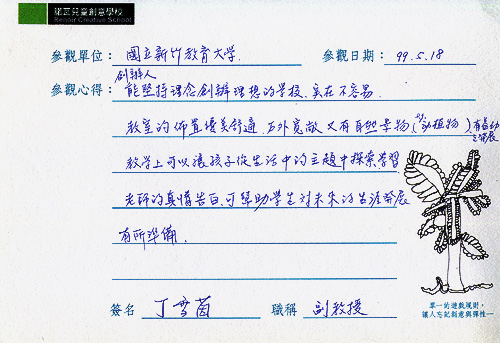 諾瓦兒童創意學校
Renoir Creative School
參觀單位：國立新竹教育大學.
參觀日期：99.5.18
創辦人
參觀心得：能堅持理念創辦理想的學校、實在不容易.
教室的佈置優美舒適、戶外寬敞又有自然景物(如動植物)、有益幼
之發展
教學上可以讓孩子從生活中的主題中探索學習
老師的真情告白、可幫助學生對未來的生涯發展
有所準備.
簽名 丁雪茵 職稱 副教授
單一的遊戲規則，
讓人忘記創意與彈性—